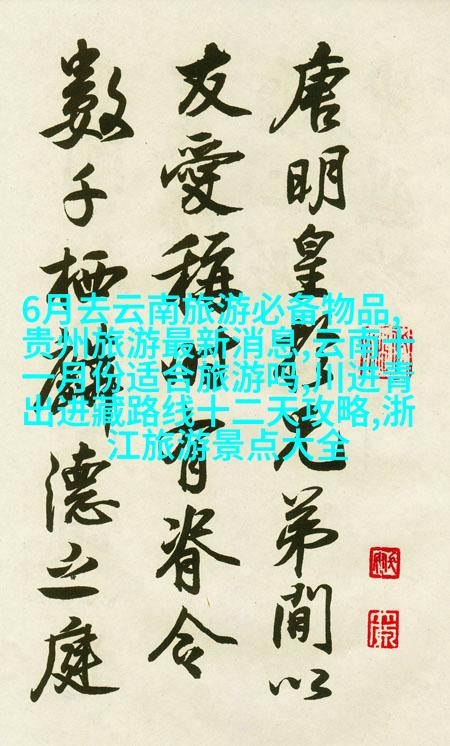 唐明皇兄弟間以
友愛稱有脊令
數千栖麟德之庭
6月去云南旅游必备物品,
贵州旅游最新消息,云南十
一月份适合旅游吗,川进青
出进藏路线十二天攻略,浙
江旅游景点大全